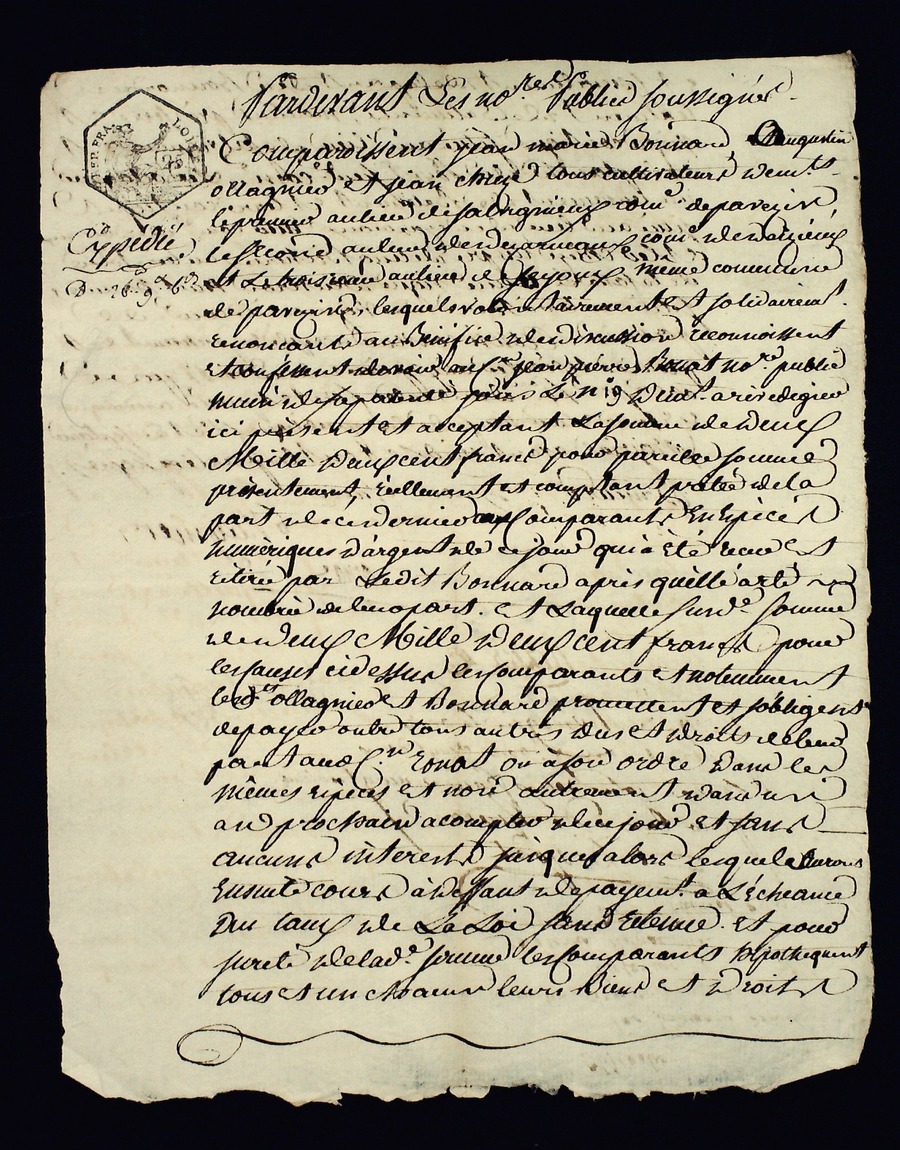 Pardevant Les no.res Publics soussignés
Comparoissent jean marie Bonnard, augustin
ollagnier et jean tous cultivateurs dem.ts
le premier au lieu de com.e de pavezin
Expédié
le second au lieu des com.e de
et Le troisieme au lieu de même commune
de pavezin, lesquels volontairement et solidairem.t
renonçants au Benifice de discussion reconnoissent
et confessent devoir au C.en jean pierre no.re public
muni de sa patente sous Le n.o 19 a rivedegier
ici present et acceptant La somme de Deux
Mille Deux cent francs pour pareille somme
présentement, réellement et comptant prêtée de la
part de ce dernier aux Comparants En Espèces
numériques d'argent de ce jour qui a été reçue et
retirée par Ledit Bonnard après quelle a été
nombrée de leur part. et Laquelle sus d.e somme
de Deux Mille Deux cent francs pour
les causes cidessus les comparants et notemment
les d.ts ollagnier et Bonnard promettent et s'obligent
de payer outre tous autres dus et droits de leur
part aud. C.en ou à son ordre Dans les
mêmes espèces et non autrement dans un
an prochain a compter de ce jour et sans
aucuns interests jusques alors lesquels auront
Ensuite cours à deffaut de payem.t a L'écheance
Du taux de La Loi sans Retenue. et pour
sureté de lad.e somme les comparants hipothequent
tous et un chacun leurs Biens et Droits